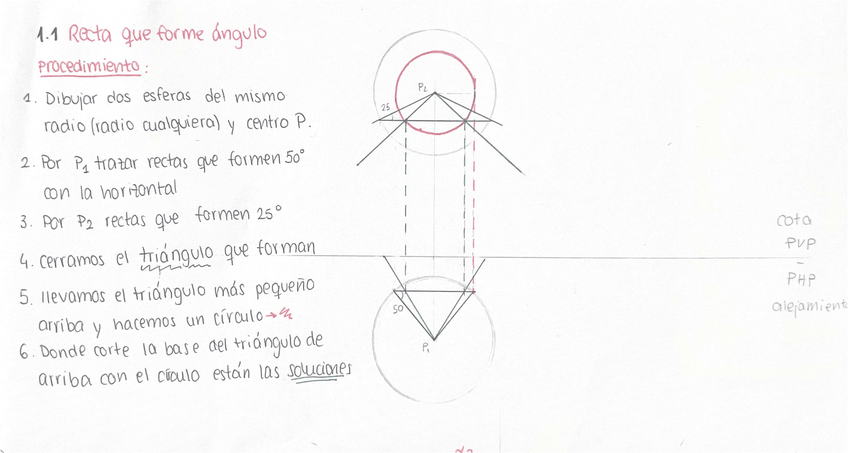 1.1 Recta que forme ángulo
Procedimiento:
1. Dibujar dos esferas del mismo
radio (radio cualquiera) y centro P.
2. Por P₁ trazar rectas que formen 50°
con la horizontal
3. Por P₂ rectas que formen 25°
4. Cerramos el triángulo que forman
5. llevamos el triángulo más pequeño
arriba y hacemos un círculo →
6. Donde corte la base del triángulo de
arriba con el círculo están las soluciones
P₂
25
50
P₁
cota
PVP
PHP
alejamient